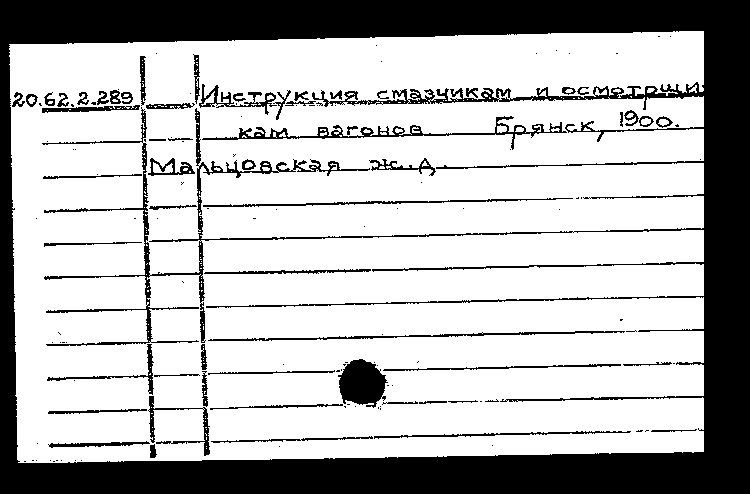 20.62.2.289 Инструкция смазчикам и осмотрщи-
кам вагонов Брянск, 1900.
Мальцовская ж.д.